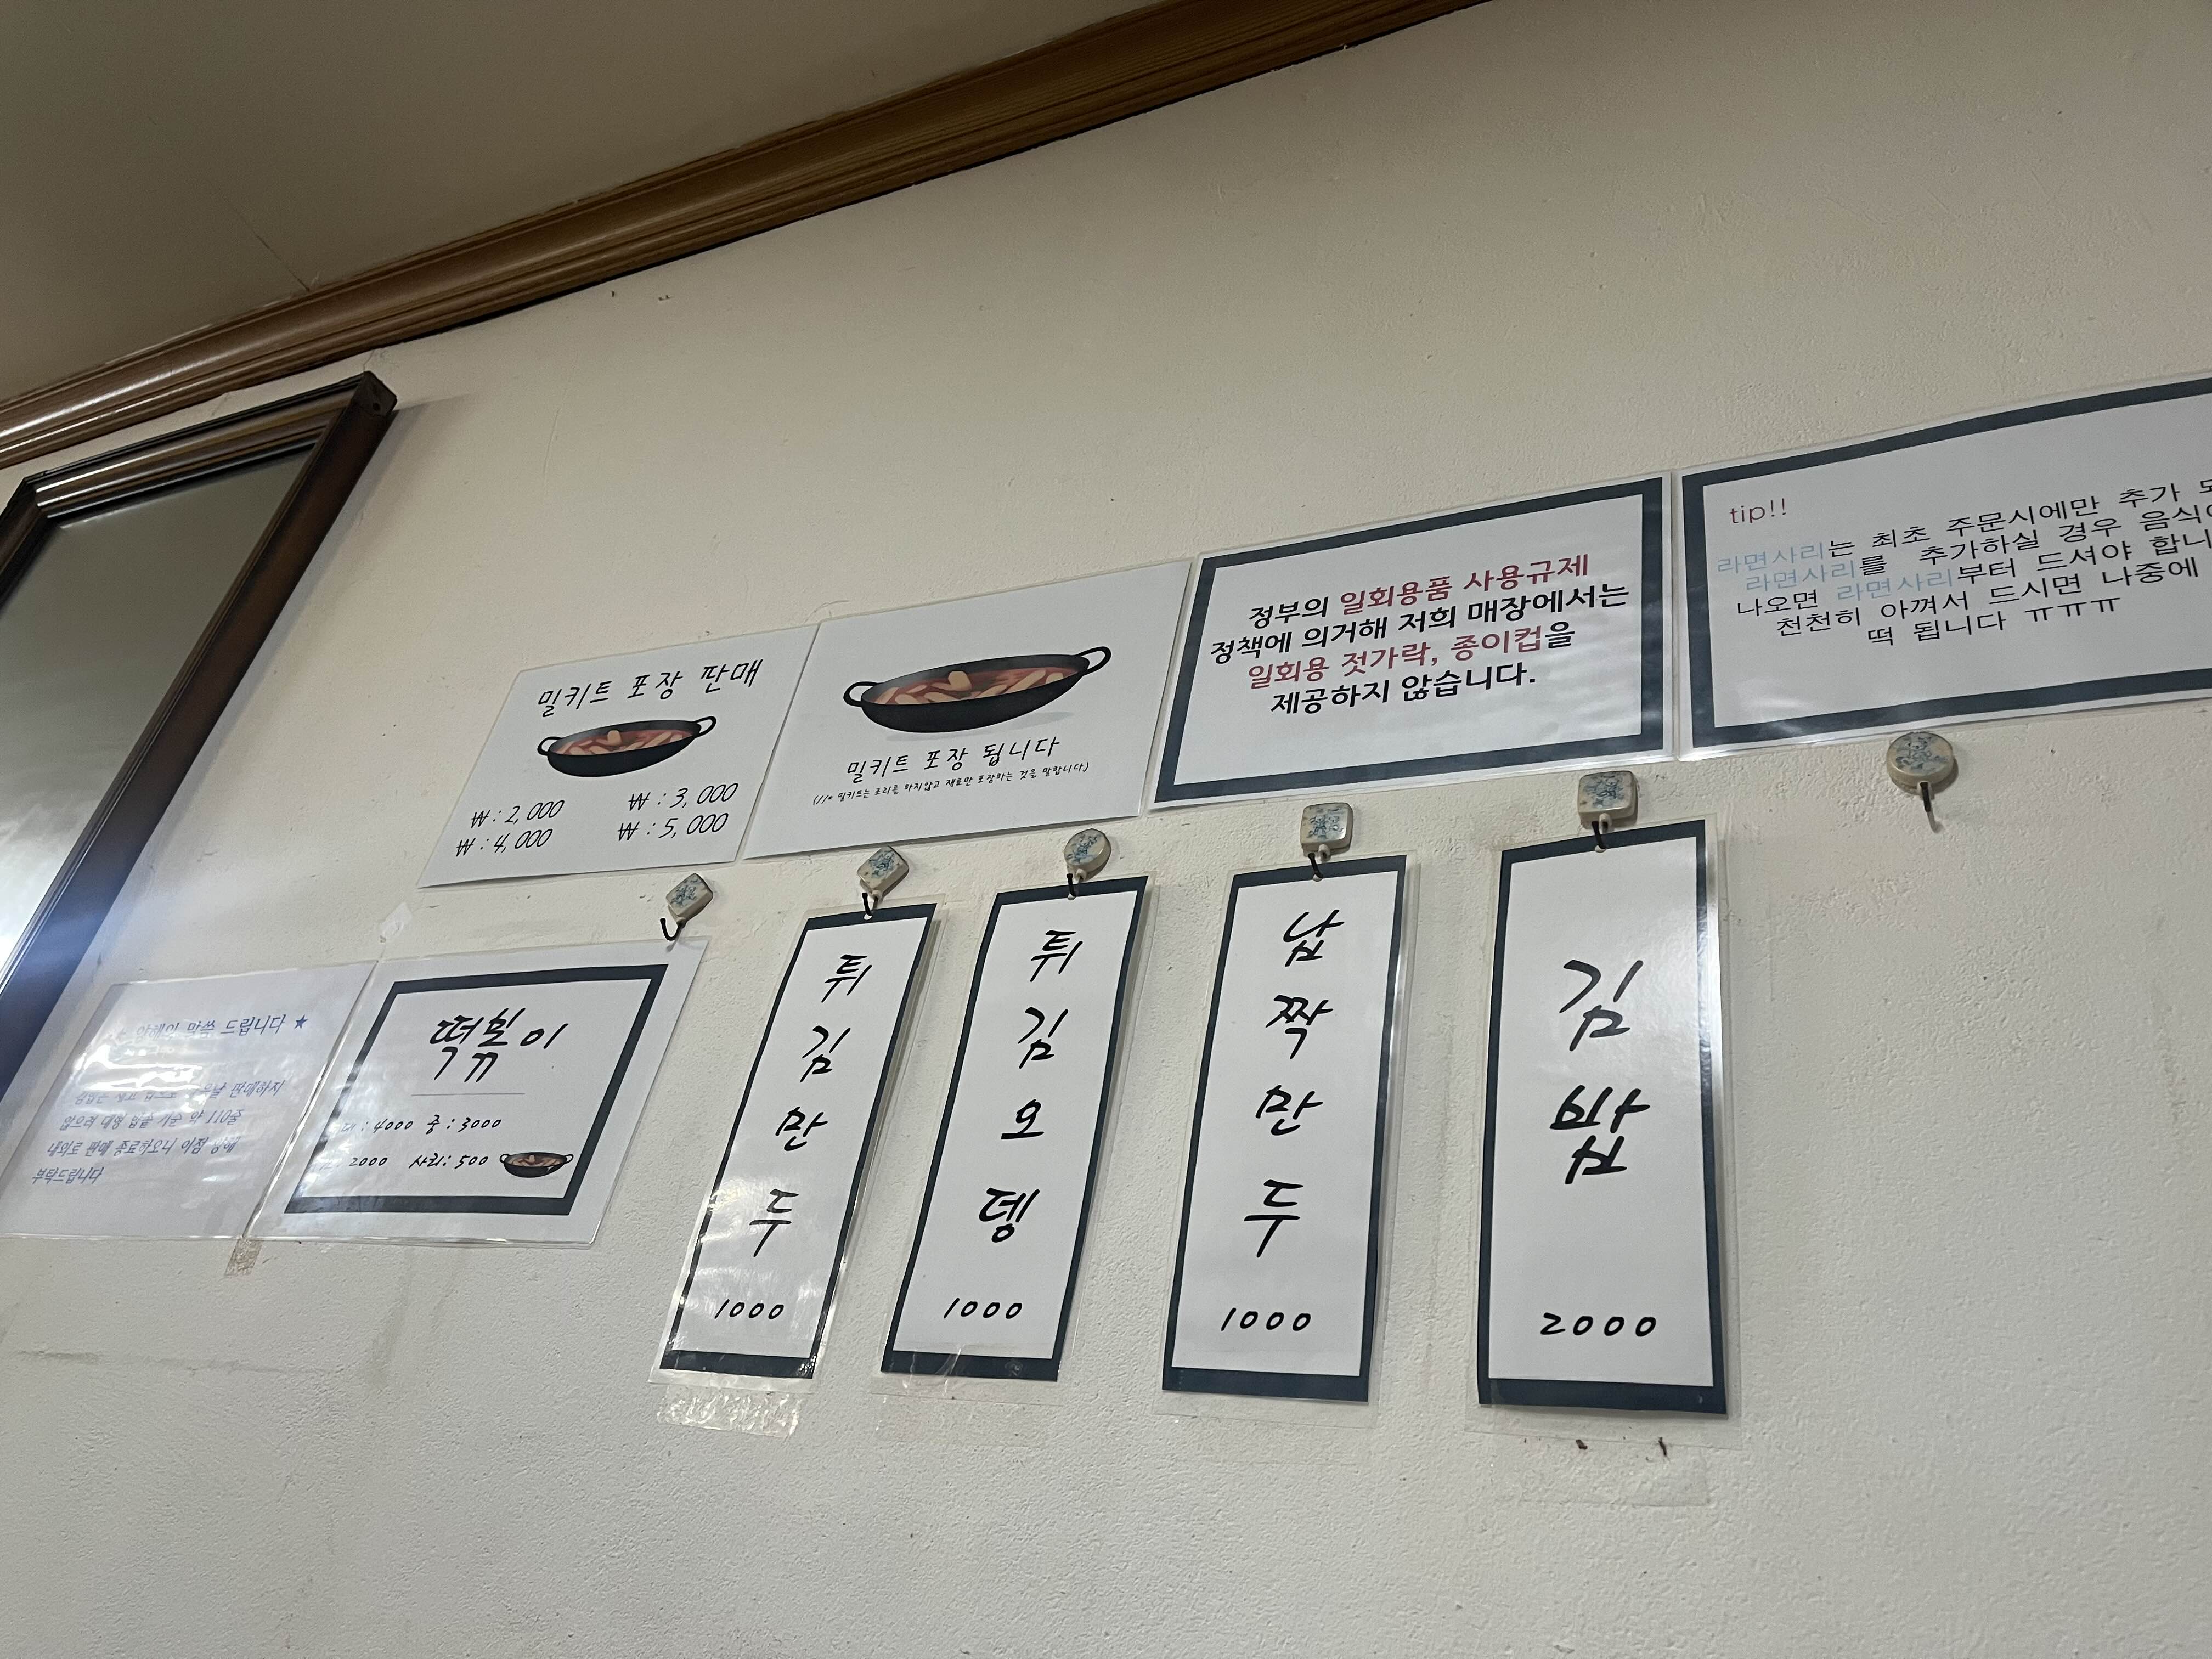 밀키트 포장 판매
₩ : 2,000 ₩ : 3,000
₩ : 4,000 ₩ : 5,000
밀키트 포장 됩니다
밀키트는 조리를 하지않고 재료만 포장하는 것을 말합니다.)
정부의 일회용품 사용규제
정책에 의거해 저희 매장에서는
일회용 젓가락, 종이컵을
제공하지 않습니다.
tip!!
라면사리는 최초 주문시에만 추가
라면사리를 추가하실 경우
나오면 라면사리부터 드셔야
천천히 아껴서 드시면 나중에
떡 됩니다 ㅠㅠㅠ
말씀 드립니다 ★
판매하지
약 110줄
내외로 판매 종료하오니 이점 양해
부탁드립니다
떡볶이
대 : 4000 중 : 3000
2000 사리 : 500
튀김만두
1000
튀김오뎅
1000
납짝만두
1000
김밥
2000